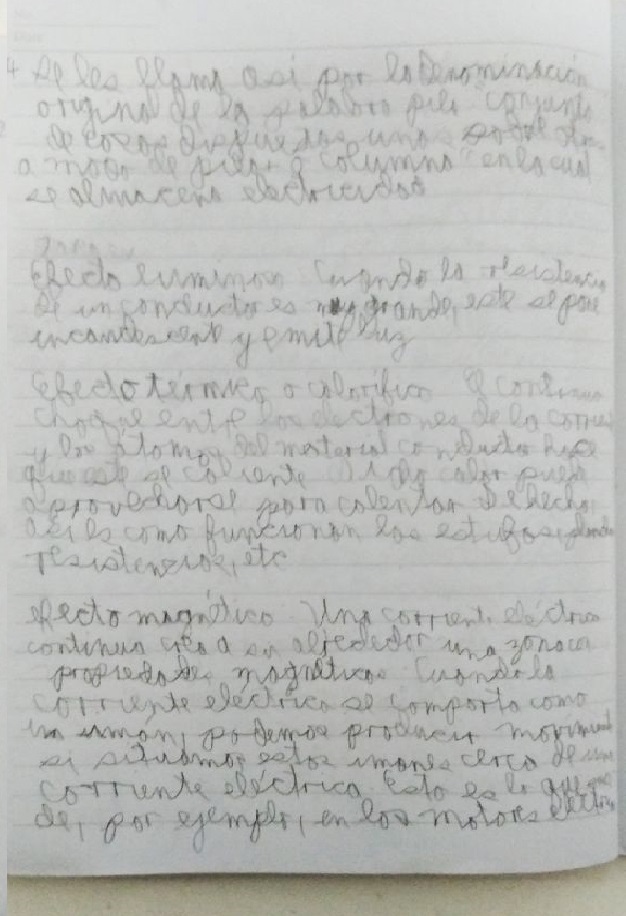 4 Se les llama asi por la denominación
origina de la palabra pila conjunto
de cosas dispuestas unas sobre otra
a modo de pilar o columna en la cual
se almacena electricidad
Efecto luminoso Cuando la resistencia
de un conductor es muy grande, este se pone
incandescente y emite luz
Efecto térmico o calorífico El continuo
choque entre los electrones de la corriente
y los átomos del material conductor hace
que este se caliente
aprovecharse para calentar De hecho
así es como funcionan las estufas, planchas
resistencias, etc
efecto magnético Una corriente eléctrica
continua crea a su alrededor una zona con
propiedades magnéticas Cuando la
corriente eléctrica se comporta como
un imán, podemos producir movimiento
si situamos estos imanes cerca de una
corriente eléctrica Esto es lo que
de, por ejemplo, en los motores